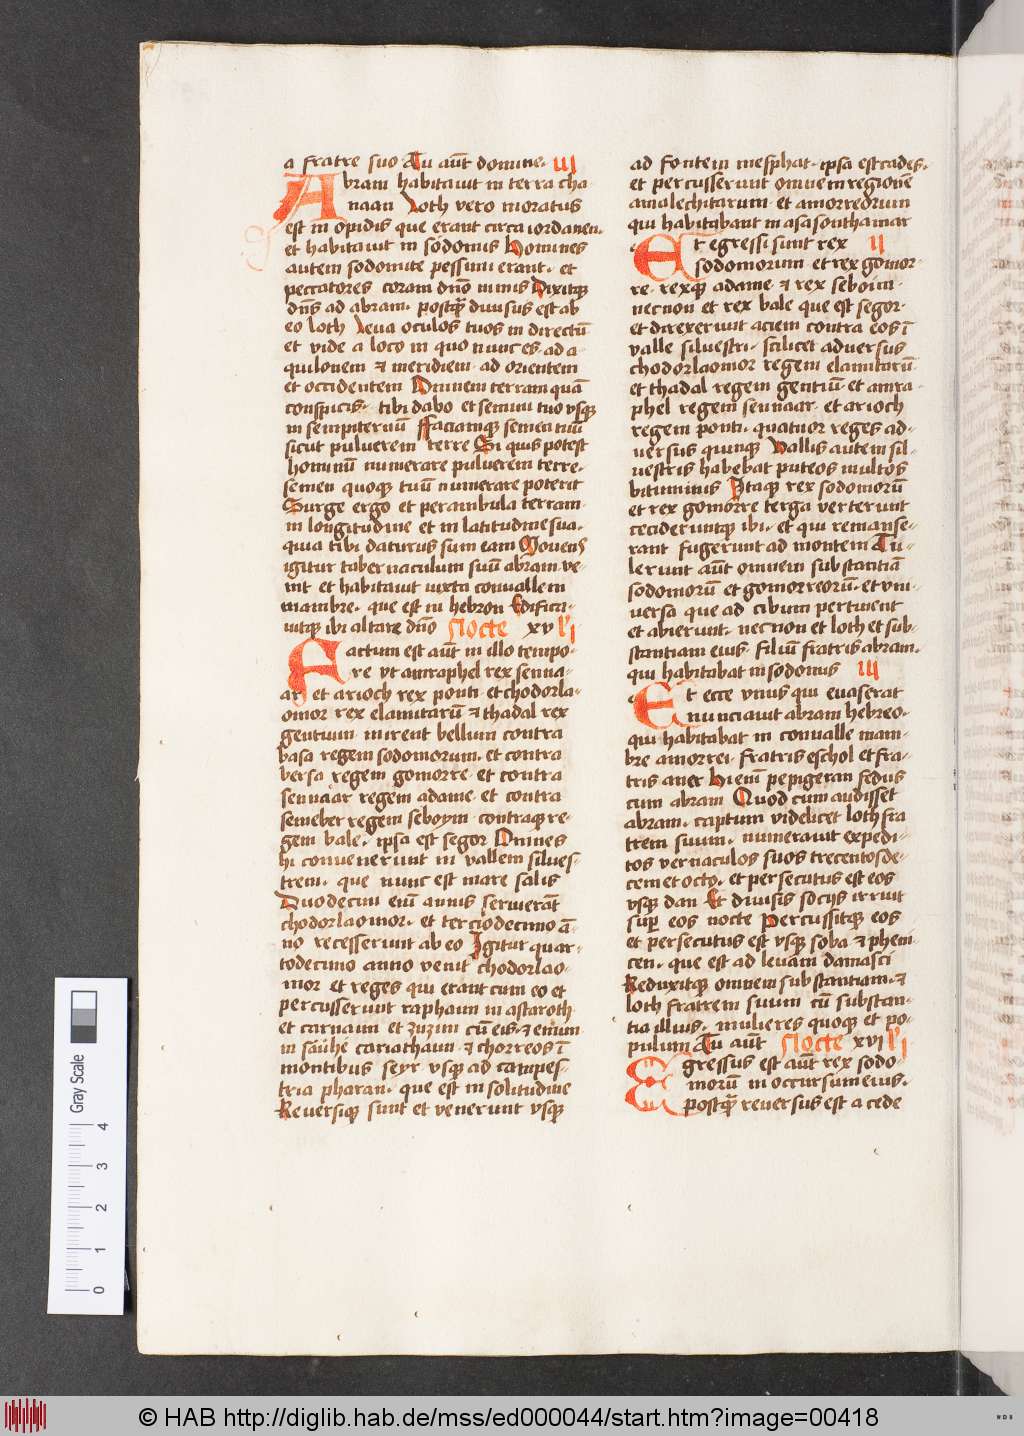 a fratre suo Tu aūt domine· III
Abram habitauit in terra cha
naan Loth vero moratus
est in opidis que erant circa iordanen·
et habitauit in sodomis Homines
autem sodomite pessimi erant· et
peccatores coram dn̄o nimis Dixitqꝫ
dn̄s ad abram· postqᷓ diuisus est ab
eo loth Leua oculos tuos in directū
et vide a loco in quo nunc es· ad a
quilonem ⁊ meridiem· ad orientem
et occidentem Omnem terram quā
conspicis· tibi dabo et semini tuo vsqꝫ
in sempiternū Faciamqꝫ semen tuū
sicut puluerem terre Si quis potest
hominū numerare puluerem terre·
semen quoqꝫ tuū numerare poterit
Surge ergo et perambula terram
in longitudine et in latitudine sua·
quia tibi daturus sum eam Mouens
igitur tabernaculum suū abram ve-
nit et habitauit iuxta conuallem
mambre· que est in hebron Edifica-
uitqꝫ ibi altare dn̄o Nocte xv li
Factum est aūt in illo tempo-
re vt amraphel rex senna-
ar et arioch rex ponti et chodorla-
omor rex elamitarū ⁊ thadal rex
gentium inirent bellum contra
basa regem sodomorum· et contra
bersa regem gomorre· et contra
sennaar regem adame· et contra
semeber regem seboym· contraqꝫ re-
gem bale· ipsa est segor Omnes
hi conuenerunt in vallem siluest
trem· que nunc est mare salis
Duodecim enī annis seruierāt
chodorlaomor· et terciodecimo ā-
no recesserunt ab eo Igitur quar-
todecimo anno venit chodorlao-
mor et reges qui erant cum eo et
percusserunt raphaim in astaroth
et carnaim et zuzim cū eis· ⁊ emim
in sauhe cariathaim· ⁊ chorreos ī
montibus seyr· vsqꝫ ad campes-
tria pharan· que est in solitudine
Reuersiqꝫ sunt et venerunt vsqꝫ
ad fontem mesphat· ipsa est cades·
et percusserunt omnem regionē
amalechitarum· et amorreorum
qui habitabant in asasonthamar
Et egressi sunt rex II
sodomorum et rex gomor
re· rexqꝫ adame· ⁊ rex seboim·
necnon et rex bale que est segor·
et direxerunt aciem contra eos ī
valle siluestri· scilicet aduersus
chodorlaomor regem elamitarū
et thadal regem gentiū· et amra-
phel regem sennaar· et arioch
regem ponti· quatuor reges ad-
uersus quinqꝫ Vallis autem sil-
uestris habebat puteos multos
bituminis Itaqꝫ rex sodomorū
et rex gomorre terga verterunt
cecideruntqꝫ ibi· et qui remanse-
rant fugerunt ad montem Tu-
lerunt aūt omnem substantiā
sodomorū et gomorreorū· et vni-
uersa que ad cibum pertinent
et abierunt· necnon et loth et sub-
stantiam eius· filiū fratris abram·
qui habitabat in sodomis III
Et ecce vnus qui euaserat
nunciauit abram hebreo·
qui habitabat in conualle mam-
bre amorrei· fratris eschol et fra-
tris aner Hi enī pepigeran fedus
cum abram Quod cum audisset
abram· captum videlicet loth fra
trem suum· numerauit expedi-
tos vernaculos suos trecentos de-
cem et octo· et persecutus est eos
vsqꝫ dan Et diuisis socijs irruit
suꝑ eos nocte Percussitqꝫ eos
et persecutus est vsqꝫ soba ⁊ pheni
cen· que est ad leuam damasci
Reduxitqꝫ omnem substantiam· ⁊
loth fratrem suum cū substan-
tia illius· mulieres quoqꝫ et po-
pulum Tu aūt Nocte xvi li
Egressus est aūt rex sodo-
morū in occursum eius·
postqᷓ reuersus est a cede
Gray Scale
0 1 2 3 4
© HAB http://diglib.hab.de/mss/ed000044/start.htm?image=00418